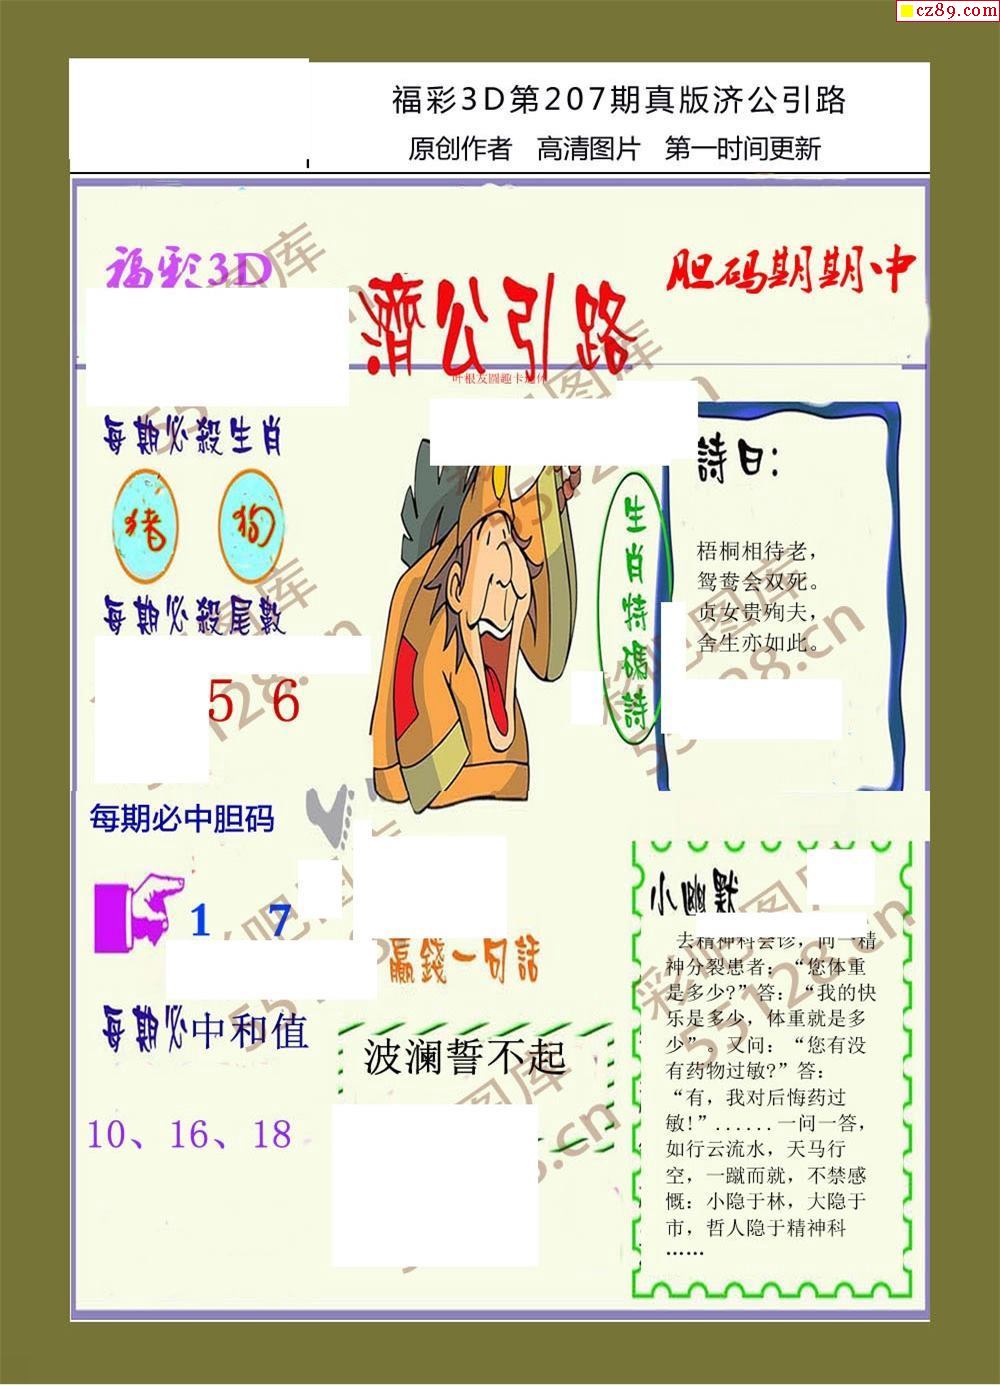 cz89.com
福彩3D第207期真版济公引路
原创作者 高清图片 第一时间更新
福彩3D
濟公引路
胆码期期中
叶根友圆趣卡通体
每期必殺生肖
猪 狗
每期必殺尾數
5 6
每期必中胆码
1 7
每期必中和值
10、16、18
生肖特碼詩
詩曰:
梧桐相待老，
鸳鸯会双死。
贞女贵殉夫，
舍生亦如此。
贏錢一句話
波澜誓不起
小幽默
去精神科会诊，问一精
神分裂患者：“您体重
是多少?”答：“我的快
乐是多少，体重就是多
少”。又问：“您有没
有药物过敏?”答：
“有，我对后悔药过
敏!”......一问一答，
如行云流水，天马行
空，一蹴而就，不禁感
慨：小隐于林，大隐于
市，哲人隐于精神科
……
彩吧图库
55128.cn